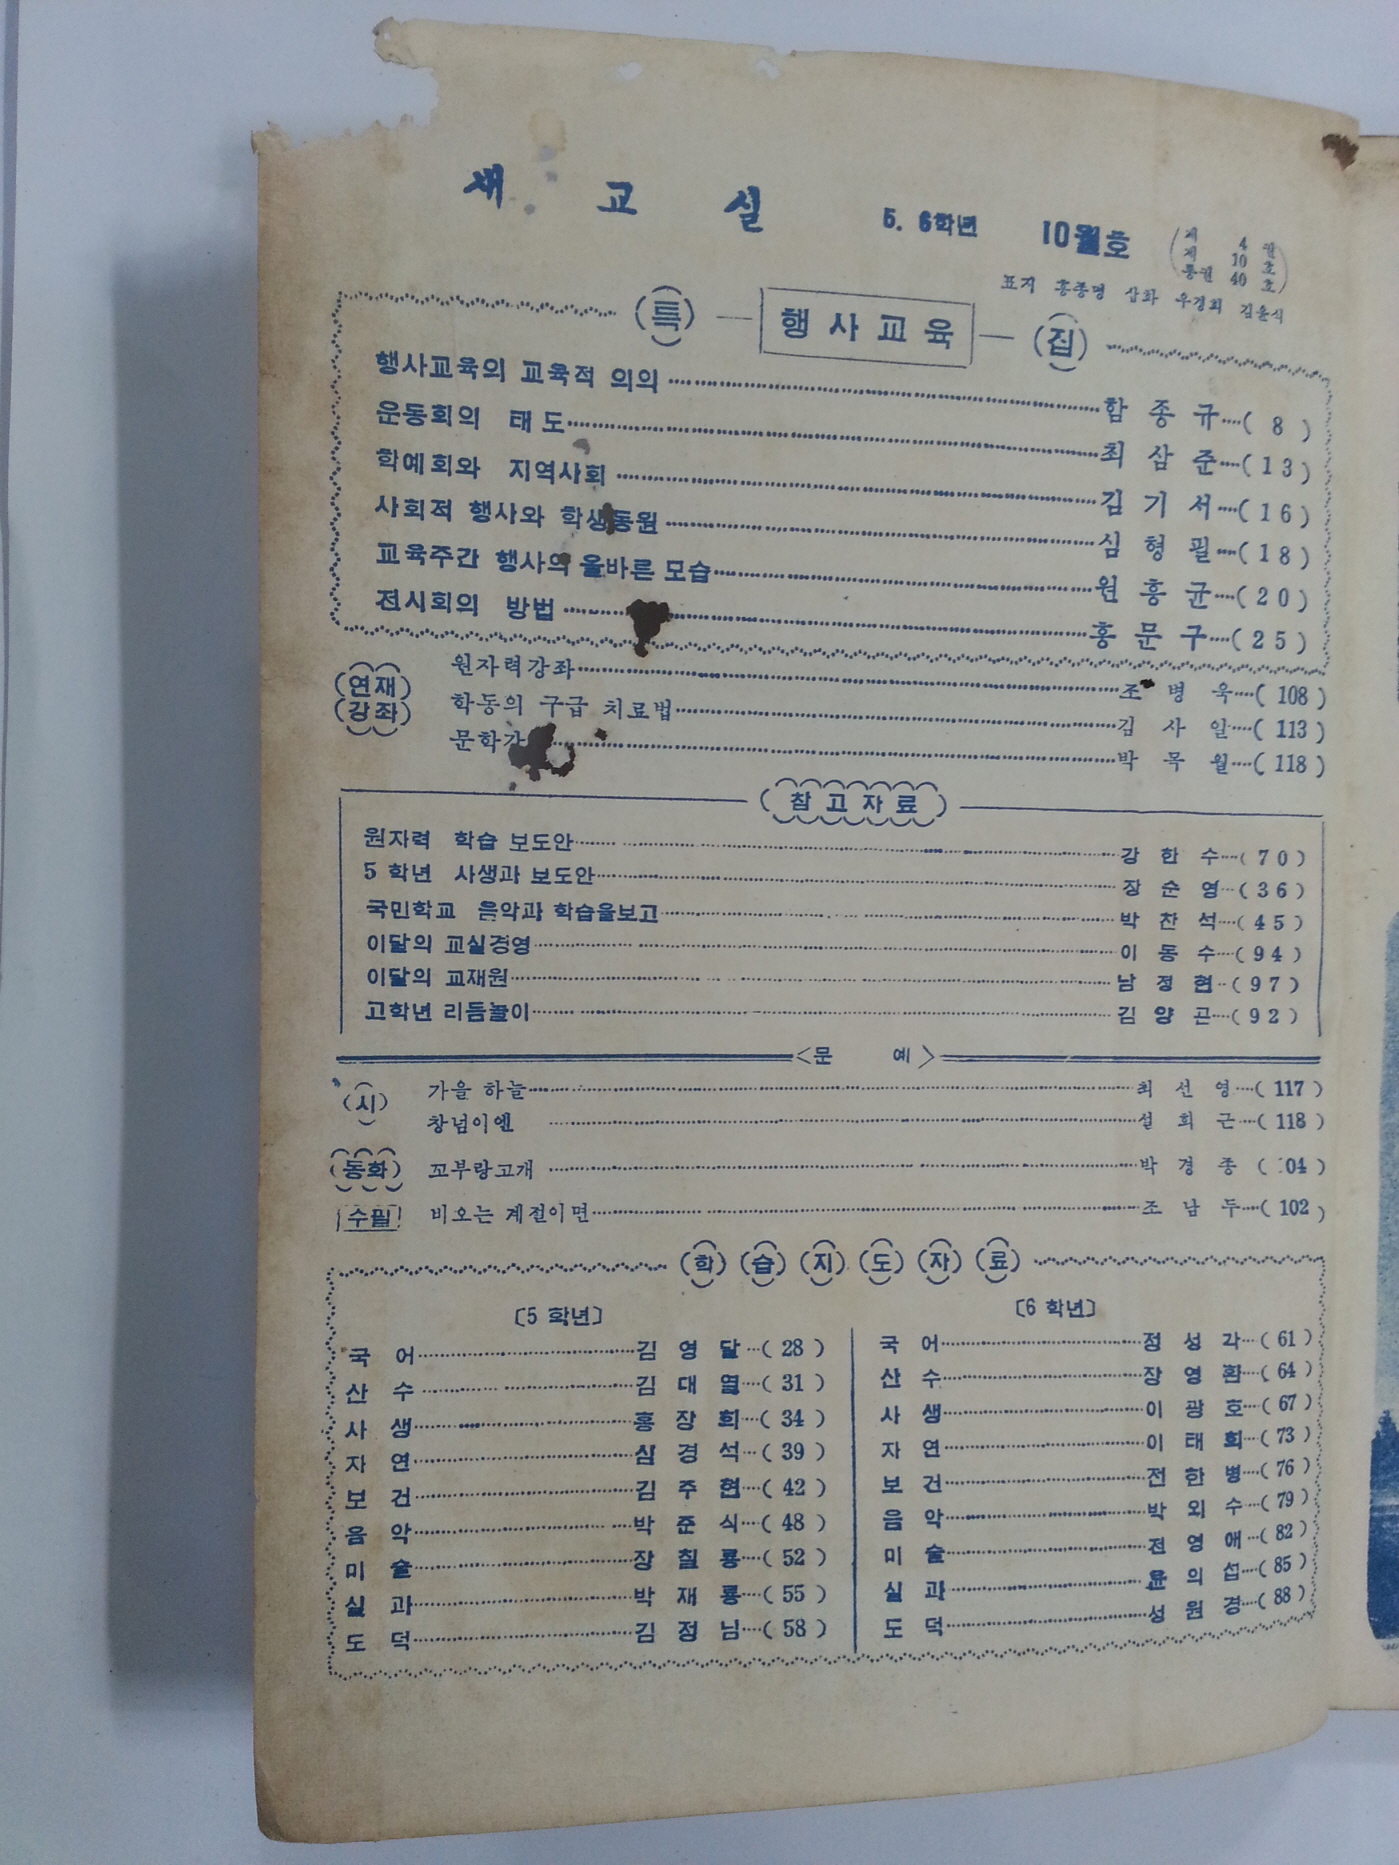 새 교 실 5. 6학년 10월호
제 4 권
제 10 호
통권 40 호
표지 홍종명 삽화 우경희 김윤식
특 행사교육 집
행사교육의 교육적 의의 함종규 (8)
운동회의 태도 최삼준 (13)
학예회와 지역사회 김기서 (16)
사회적 행사와 학생동원 심형필 (18)
교육주간 행사의 올바른 모습 원흥균 (20)
전시회의 방법 홍문구 (25)
연재
강좌
원자력강좌 조병욱 (108)
학동의 구급 치료법 김사일 (113)
문학 박목월 (118)
참고자료
원자력 학습 보도안 강한수 (70)
5 학년 사생과 보도안 장순영 (36)
국민학교 음악과 학습을보고 박찬석 (45)
이달의 교실경영 이동수 (94)
이달의 교재원 남정현 (97)
고학년 리듬놀이 김양곤 (92)
<문 예>
시
가을 하늘 최선영 (117)
창넘이엔 설희근 (118)
동화 꼬부랑고개 박경종 ( 04)
수필 비오는 계절이면 조남두 (102)
학습지도자료
〔5 학년〕
국어 김영달 (28)
산수 김대열 (31)
사생 홍장희 (34)
자연 심경석 (39)
보건 김주현 (42)
음악 박준식 (48)
미술 장칠룡 (52)
실과 박재룡 (55)
도덕 김정님 (58)
〔6 학년〕
국어 정성각 (61)
산수 장영환 (64)
사생 이광호 (67)
자연 이태희 (73)
보건 전한병 (76)
음악 박외수 (79)
미술 전영애 (82)
실과 윤의섭 (85)
도덕 성원경 (88)